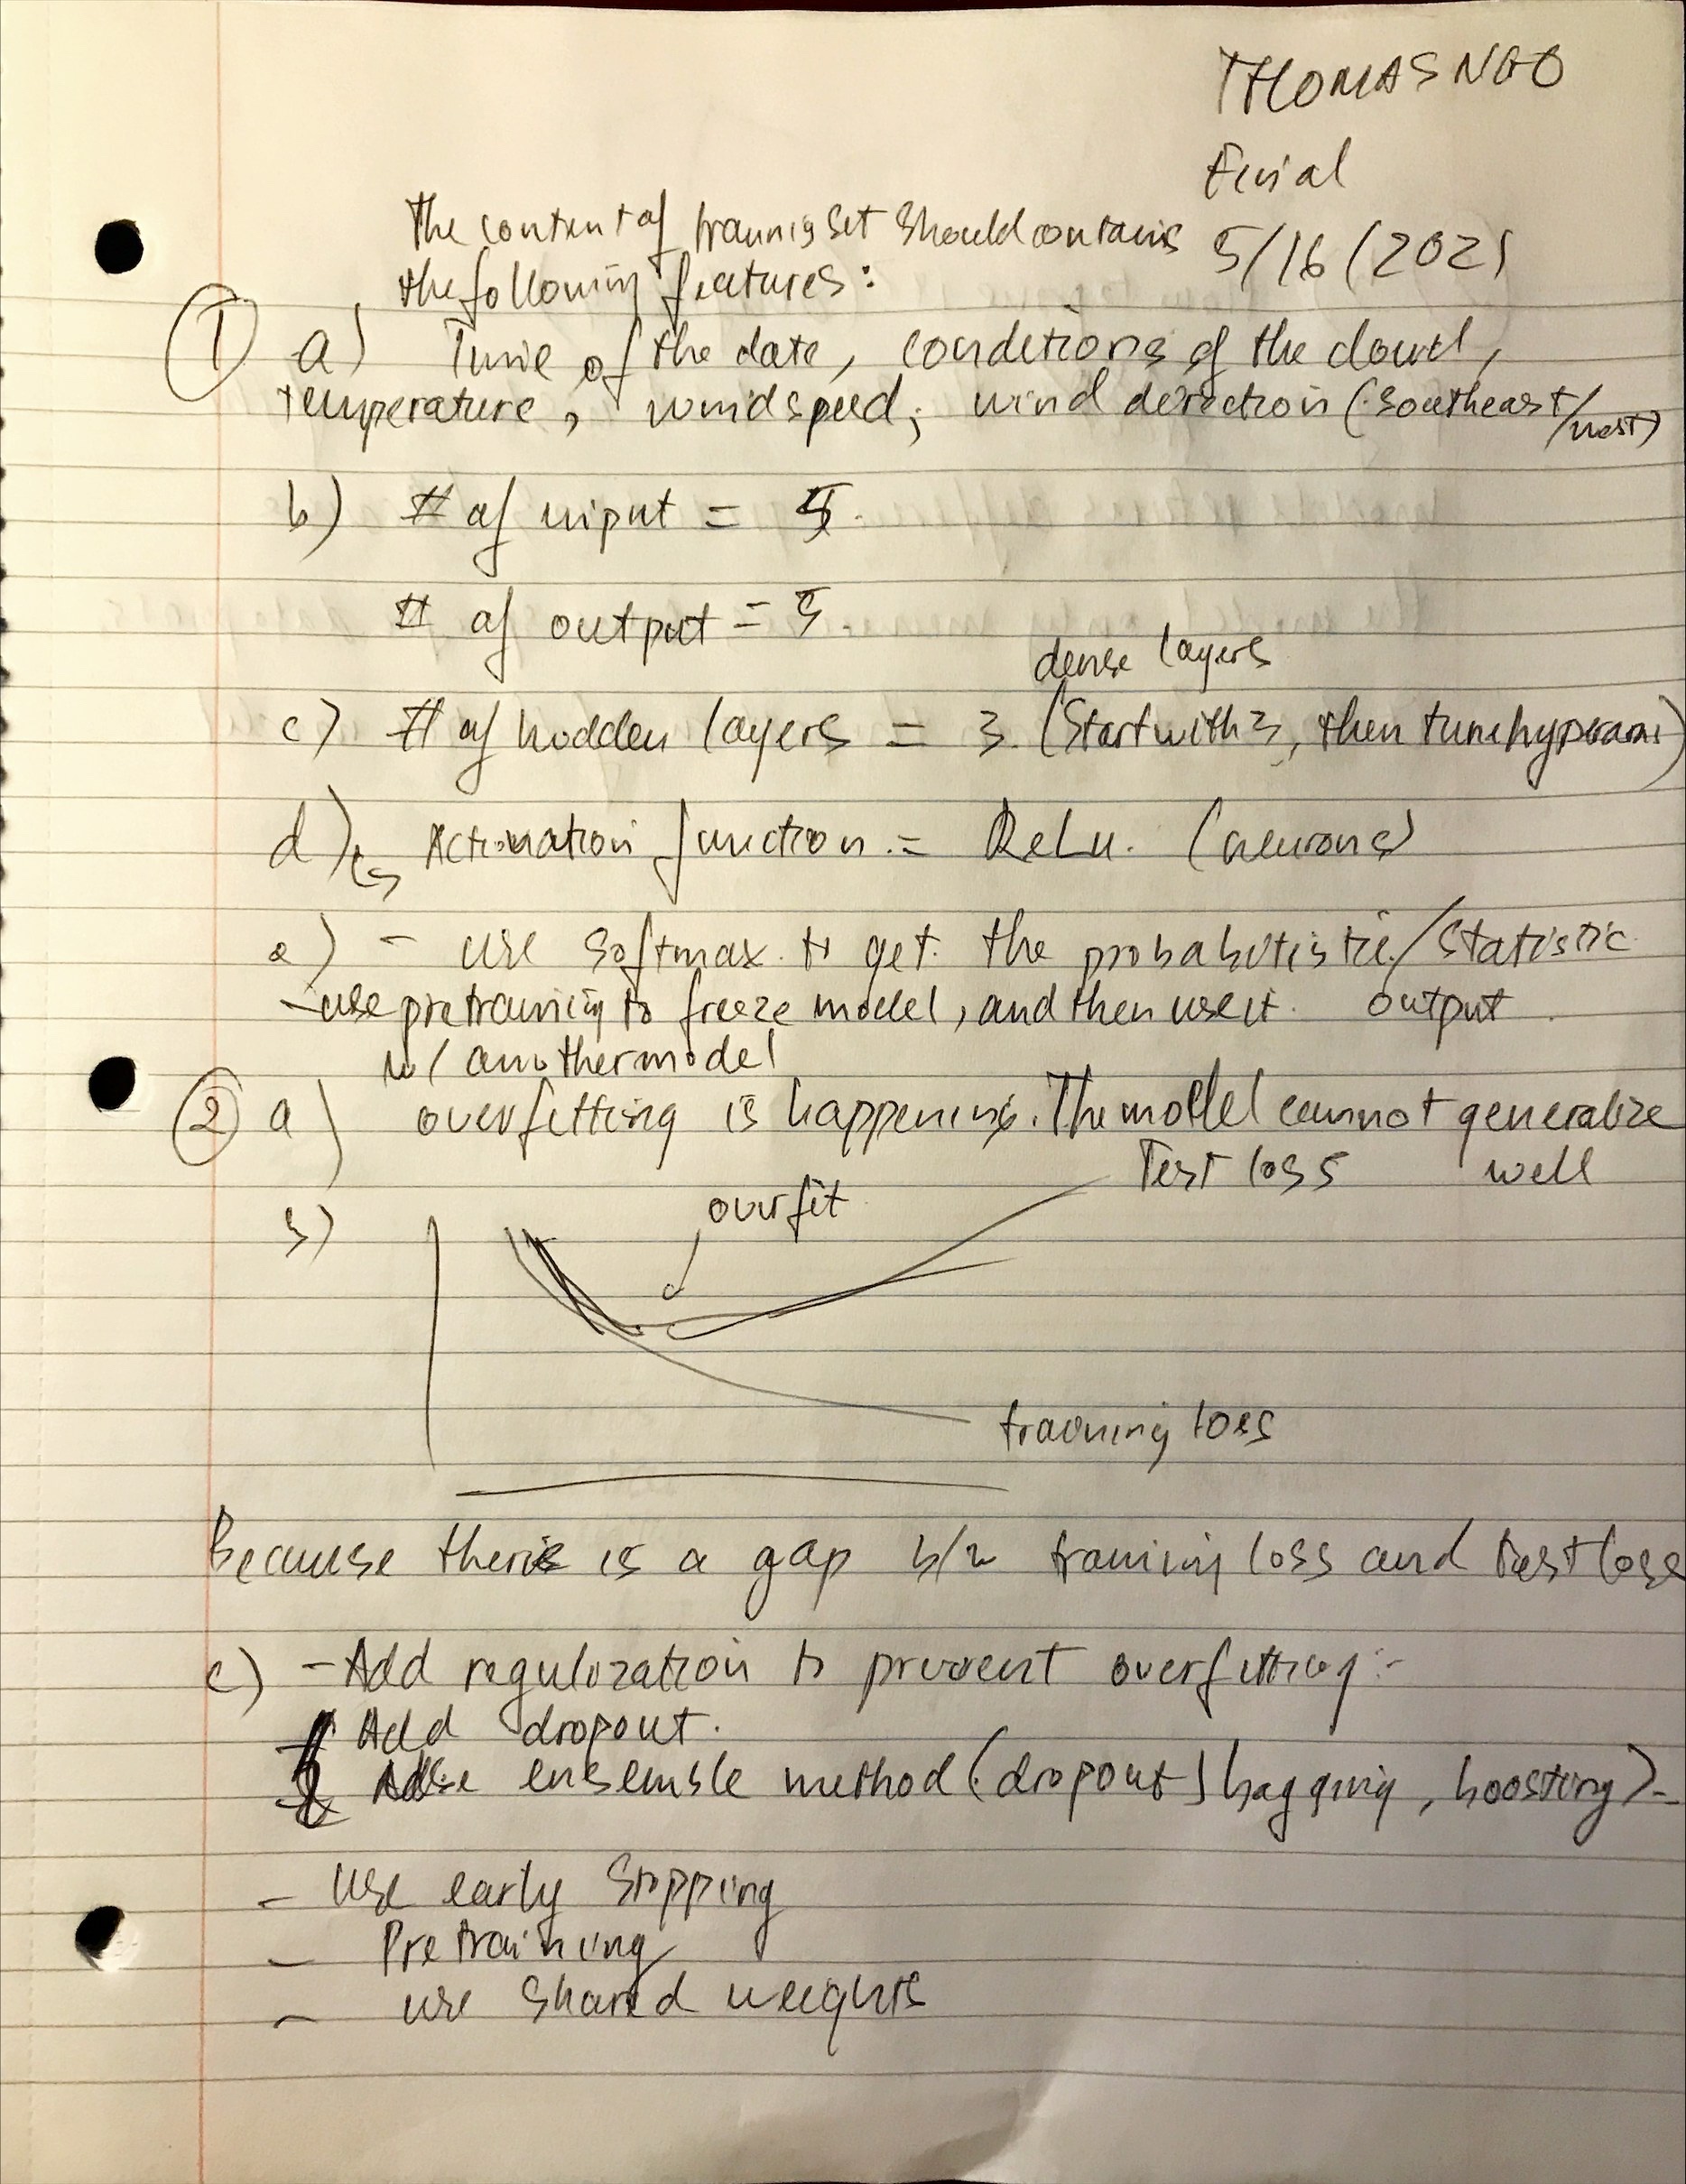 THOMAS NGO
Final
5/16/2021
The content of training set should contains
the following features:
① a) Time of the date, conditions of the cloud,
temperature, windspeed, wind direction (southeast/west)
b) # of input = 5.
# of output = 5.
dense layers
c) # of hidden layers = 3. (Start with 3, then tune hyperparams)
d) ↳ Activation function = ReLu. (neurons)
e) - use softmax to get the probabilistic/statistic
output
- use pretraining to freeze model, and then use it
w/ another model
② a) overfitting is happening. The model cannot generalize
well
Test loss
overfit
b)
training loss
Because there is a gap b/w training loss and test loss
c) - Add regulization to prevent overfitting:
- Add dropout.
Use ensemble method (dropout, bagging, boosting)
- Use early stopping
- Pretraining
- use shared weights